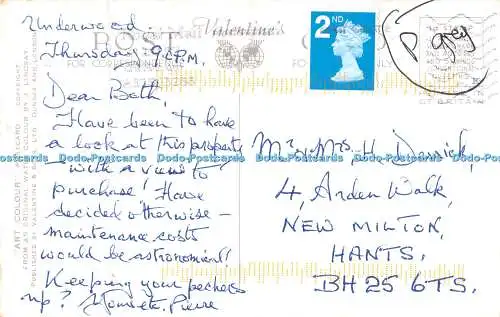 Underwood.
Thursday: 9 P.M.
Dear Both,
Have been to have
a look at this property
"with a view to
purchase"! Have
decided otherwise –
maintenance costs
would be astronomical!
Keeping your peckers
up? Pierre
Valentine's
POST CARD
FOR CORRESPONDENCE
2ND
P grey
Mr & Mrs. H
4, Arden Walk,
NEW MILTON,
HANTS.
BH25 6TS.
"ART COLOUR" POST CARD
FROM AN ORIGINAL WATER COLOUR BY
PUBLISHED BY VALENTINE & SONS, LTD. DUNDEE AND LONDON
COPYRIGHT
Dodo-Postcards Dodo-Postcards Dodo-Postcards Dodo-Postcards Dodo-Postcards Dodo-Postcards